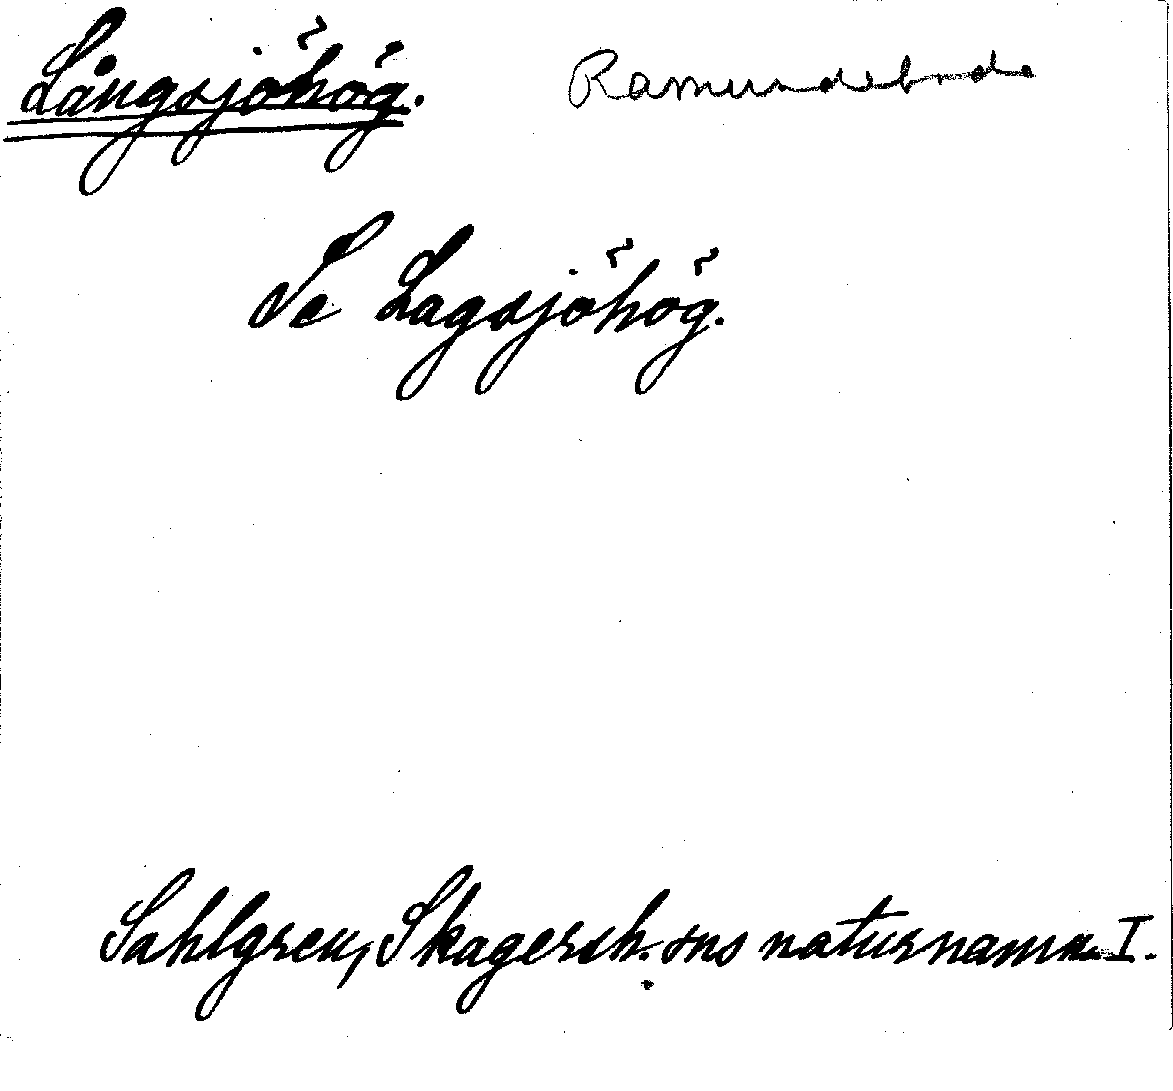 Långsjöhög. Ramundeboda
Se Lagsjöhög.
Sahlgren, Skagersh. sns naturnamn I.